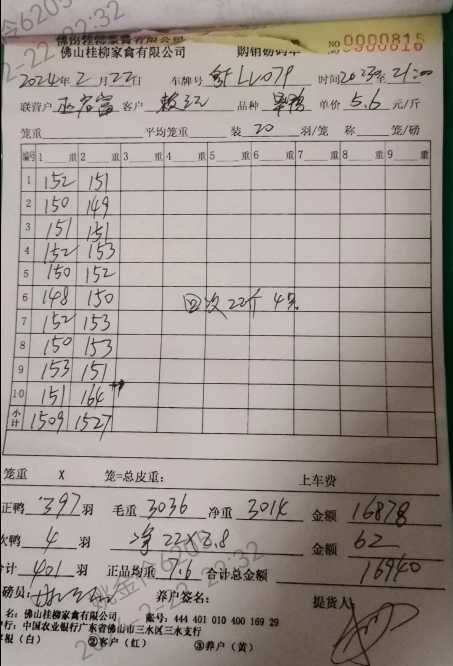 佛山桂柳家禽有限公司
NO 0000815
佛山桂柳家禽有限公司 购销磅码单
2024年2月22日 车牌号 LV079 时间 21:00
联营户 客户 品种 单价 5.6 元/斤
笼重 平均笼重 装 20 羽/笼 称 笼/磅
编号 1 重 2 重 3 重 4 重 5 重 6 重 7 重 8 重 9 重
1 152 151
2 150 149
3 151 151
4 152 153
5 150 152
6 148 150 回次22斤4只
7 152 153
8 150 153
9 153 151
10 151 164
小计 1509 1527
笼重 X 笼=总皮重: 上车费
正鸭 397 羽 毛重 3036 净重 3014 金额 16878
次鸭 4 羽 净22×2.8 金额 62
合计 401 羽 正品均重 7.6 合计总金额 16940
磅员: 养户签名: 提货人:
名: 佛山桂柳家禽有限公司 账号: 444 401 010 400 169 29
行: 中国农业银行广东省佛山市三水区三水支行
(白) ②客户(红) ③养户(黄)